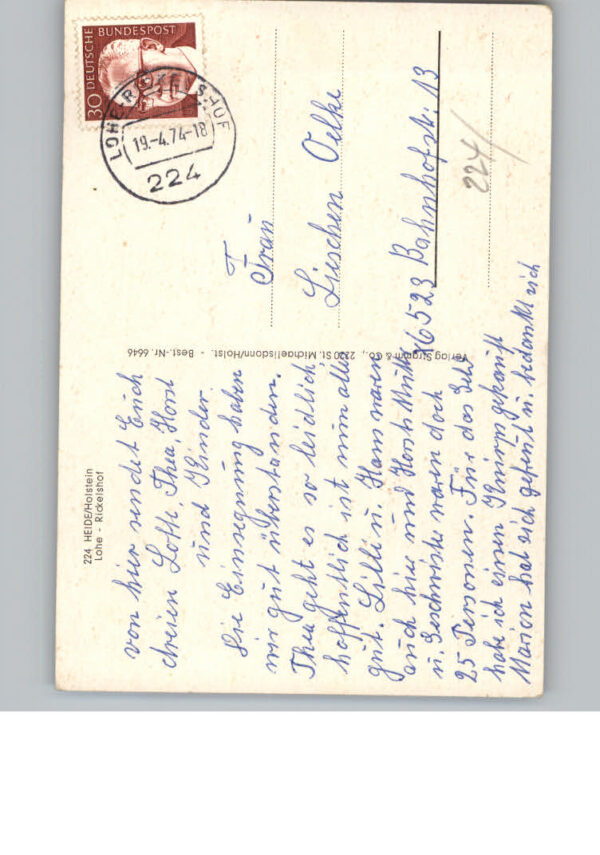 224 HEIDE/Holstein
Lohe - Rickelshof
von hier sendet Euch
dreien Lotte, Thea, Horst
und Kinder.
Die Einsegnung haben
wir gut überstanden.
Thea geht es so leidlich,
hoffentlich ist nun alles
gut. Lilli u. Hans waren
auch hier und Horsts Mutter
u. Geschwister waren doch
25 Personen. Für das Geld
habe ich einen Knirps gekauft
Marion hat sich gefreut u. bedankt sich
Verlag Stramm & Co., 2220 St. Michaelisdonn/Holst. - Best.-Nr. 6646
DEUTSCHE BUNDESPOST
30
LOHE-RICKELSHOF
19.-4.74-18
224
Frau
Lieschen Oelke
6523 Bahnhofstr. 13
224/